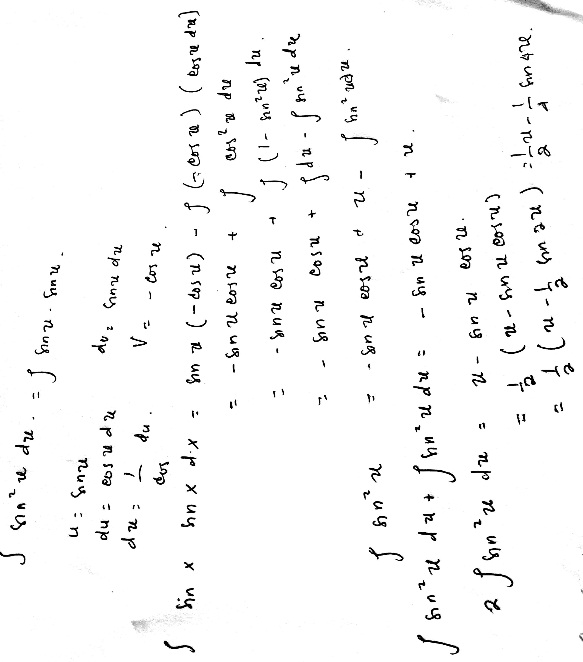 ∫ sin²x dx = ∫ sinx . sinx.
u = sinx    dv = sinx dx
du = cosx dx    V = - cosx.
dx = 1/cos du.
∫ sin x sin x d.x = sin x (-cosx) - ∫ (-cosx) (cosx dx)
= -sin x cosx + ∫ cos²x dx
= -sinx cosx + ∫ (1 - sin²x) dx.
= - sinx cosx + ∫ dx - ∫ sin²x dx
∫ sin²x = -sinx cosx + x - ∫ sin²x dx.
∫ sin²x dx + ∫ sin²x dx = - sinx cosx + x.
2 ∫ sin²x dx = x - sinx cosx.
= 1/2 (x - sinx cosx)
= 1/2 (x - 1/2 sin2x) = 1/2 x - 1/4 sin4x.